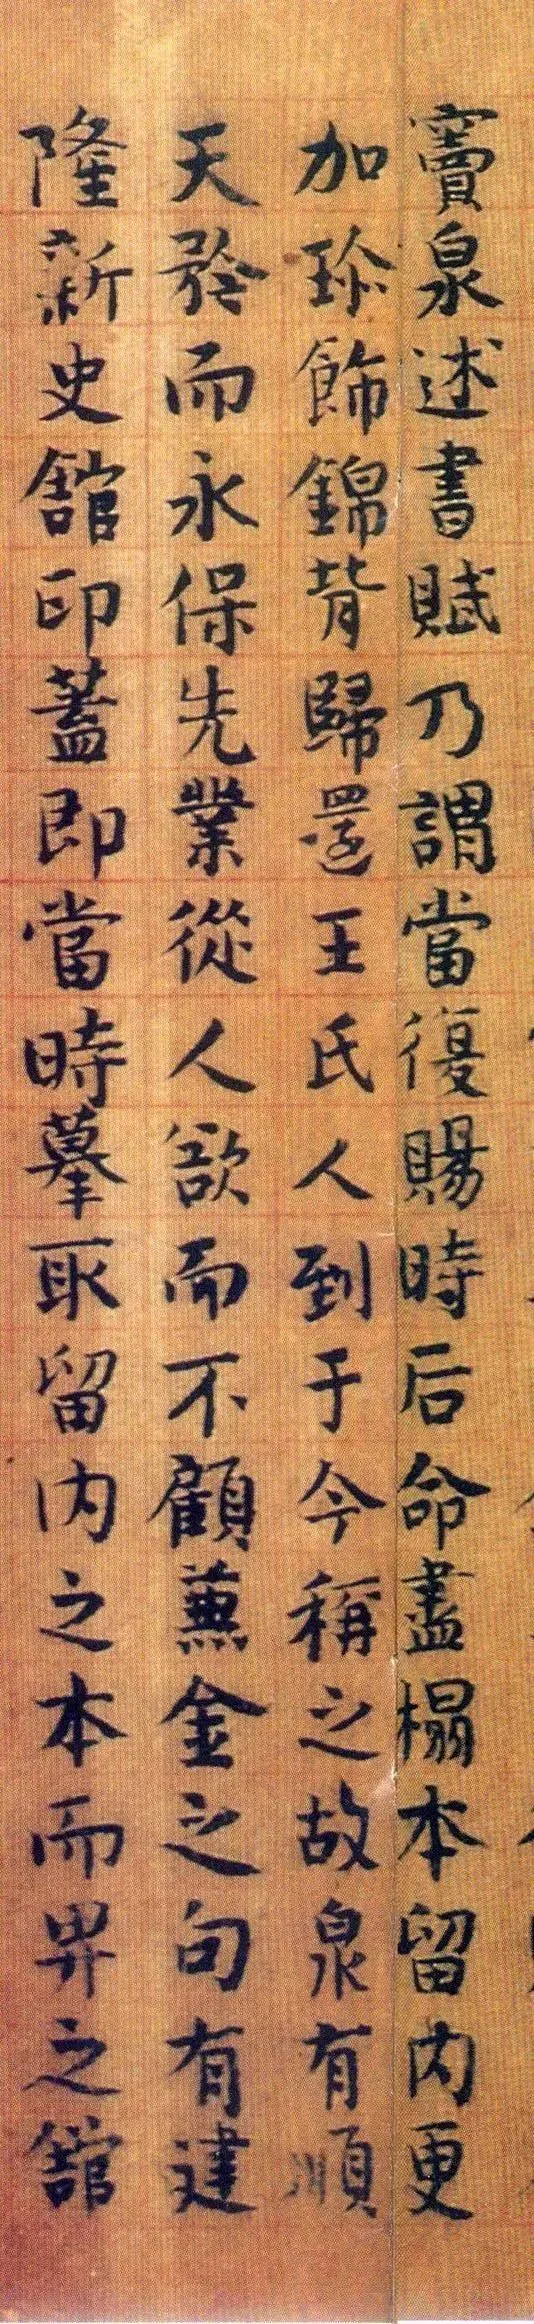 竇泉述書賦乃謂當復賜時后命盡榻本留内更
加珎飾錦背歸還王氏人到于今稱之故泉有順
天矜而永保先業從人欲而不顧蒹金之句有建
隆新史舘印蓋即當時摹取留内之本而畀之舘